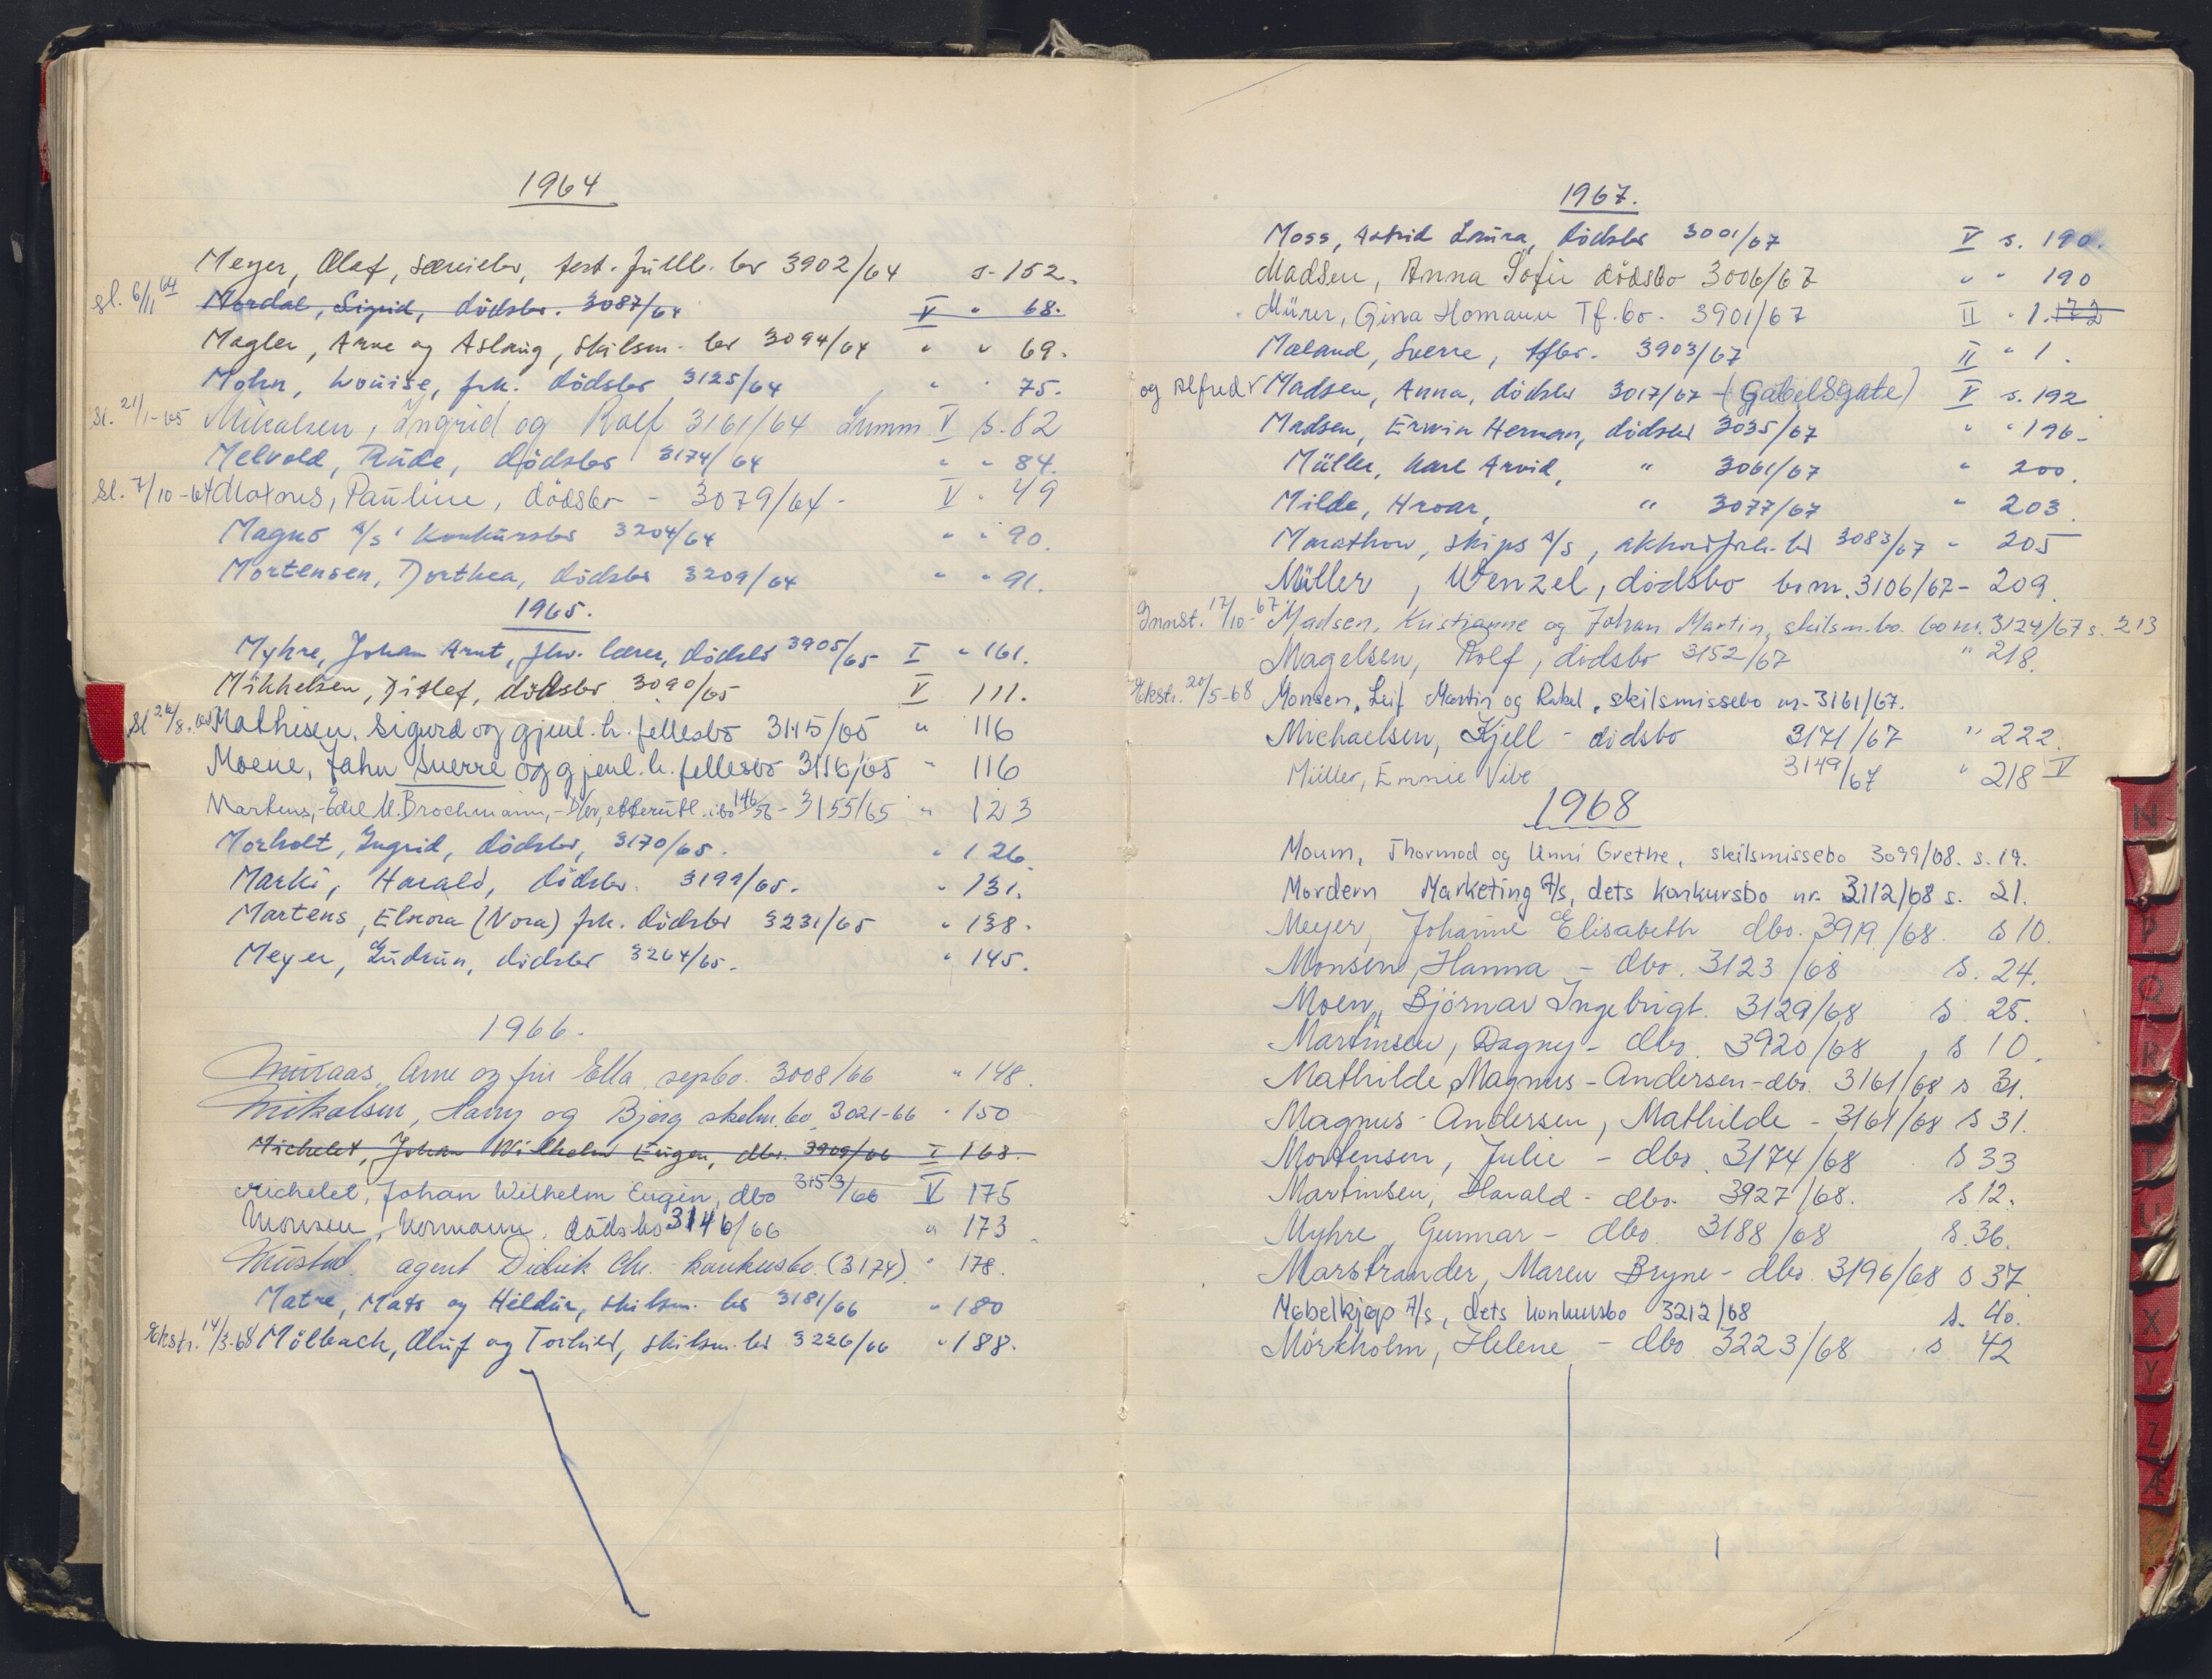 1964
Meyer, Olaf, særeiebo, test. fullb. bo 3902/64 s. 152.
sl. 6/11 64 Mordal, Sigrid, dödsbo. 3087/64 V " 68.
Magler, Arne og Aslaug, skilsm. bo 3094/64 " " 69.
Mohn, Louise, frk. dödsbo 3125/64 " " 75.
sl. 21/1-65 Mikalsen, Ingrid og Rolf 3161/64 V s. 82
Melvold, Rude, dödsbo 3174/64 " " 84.
sl. 7/10-64 Moxnes, Pauline, dödsbo - 3079/64 - V " 49
Magno A/S' konkursbo 3204/64 " " 90.
Mortensen, Dorthea, dödsbo 3209/64 " " 91.
1965.
Myhre, Johan Arnt, fhv. lærer, dödsbo 3905/65 I " 161.
Mikkelsen, Ditlef, dödsbo 3090/65 V 111.
Sl 26/8.65 Mathisen, Sigurd og gjenl. h. fellesbo 3115/65 " 116
Moene, Jahn Sverre og gjenl. h. fellesbo 3116/65 " 116
Martens, - Edel M. Brochmann, - etterutl. i bo 146/56 - 3155/65 " 123
Morholt, Ingrid, dödsbo, 3170/65. " 126
Marki, Harald, dödsbo. 3199/65. " 131.
Martens, Elnora (Nora) frk. dödsbo 3231/65 " 138.
Meyer, Gudrun, dödsbo 3264/65. " 145.
1966.
Muraas, Arne og fru Ella sepbo. 3008/66 " 148.
Mikalsen, Harry og Bjørg skilsm. bo. 3021-66 " 150
Michelet, Johan Wilhelm Eugen, dbo. 3909/66 I 168.
Michelet, Johan Wilhelm Eugen, dbo 3153/66 V 175
Monsen, Normann, dödsbo 3146/66 " 173
Mustad agent Didrik Chr. konkursbo. (3174). " 178.
Matre, Mats og Hildur, skilsm. bo 3181/66 " 180
Ekstr. 14/3-68 Mölbach, Oluf og Torhild, skilsm. bo 3226/66 " 188.
1967.
Moss, Astrid Laura, dödsbo 3001/67 V s. 190.
Madsen, Anna Sofie dödsbo 3006/67 " " 190
Mürer, Gina Homann Tf. bo. 3901/67 II " 1. 172
Mæland, Sverre, tfbo. 3903/67 II " 1.
og Alfred Madsen, Anna, dödsbo 3017/67 - (Gabelsgate) V s. 192
Madsen, Erwin Herman, dödsbo 3035/67 " " 196.
Müller, Karl Arvid, " 3061/67 " 200.
Milde, Hroar, " 3077/67 " 203.
Marathon, skips A/S, akkordforh. bo 3083/67 " 205
Müller, Wenzel, dödsbo bo nr. 3106/67 - 209.
Innst. 17/10-67 Madsen, Kristianne og Johan Martin, skilsm. bo. bo nr. 3124/67 s. 213
Magelsen, Rolf, dödsbo 3152/67 " 218.
Ekstr. 20/5-68 Monsen, Leif Martin og Rakel, skilsmissebo nr. 3161/67.
Michaelsen, Kjell - dödsbo 3171/67 " 222.
Müller, Emmie Vibe 3149/67 " 218 V
1968
Moum, Thormod og Unni Grethe, skilsmissebo 3099/68. s. 19.
Mordern Marketing A/S, dets konkursbo nr. 3112/68 s. 21.
Meyer, Johanne Elisabeth dbo. 3919/68. s 10.
Monsen, Hanna - dbo. 3123/68 s. 24.
Moen, Björnar Ingebrigt. 3129/68 s. 25.
Martinsen, Dagny - dbo. 3920/68, s 10.
Mathilde Magnus-Andersen - dbo. 3161/68 s 31.
Magnus-Andersen, Mathilde - 3161/68 s 31.
Mortensen, Julie - dbo. 3174/68 s 33
Martinsen, Harald - dbo. 3927/68. s 12.
Myhre, Gunnar - dbo. 3188/68 s. 36.
Marstrander, Maren Bryne - dbo. 3196/68 s 37
Møbelkjøp A/S, dets konkursbo 3212/68 s. 40.
Mörkholm, Helene - dbo 3223/68 s 42
N
P
Q
R
T
U
X
Y
Z
Æ